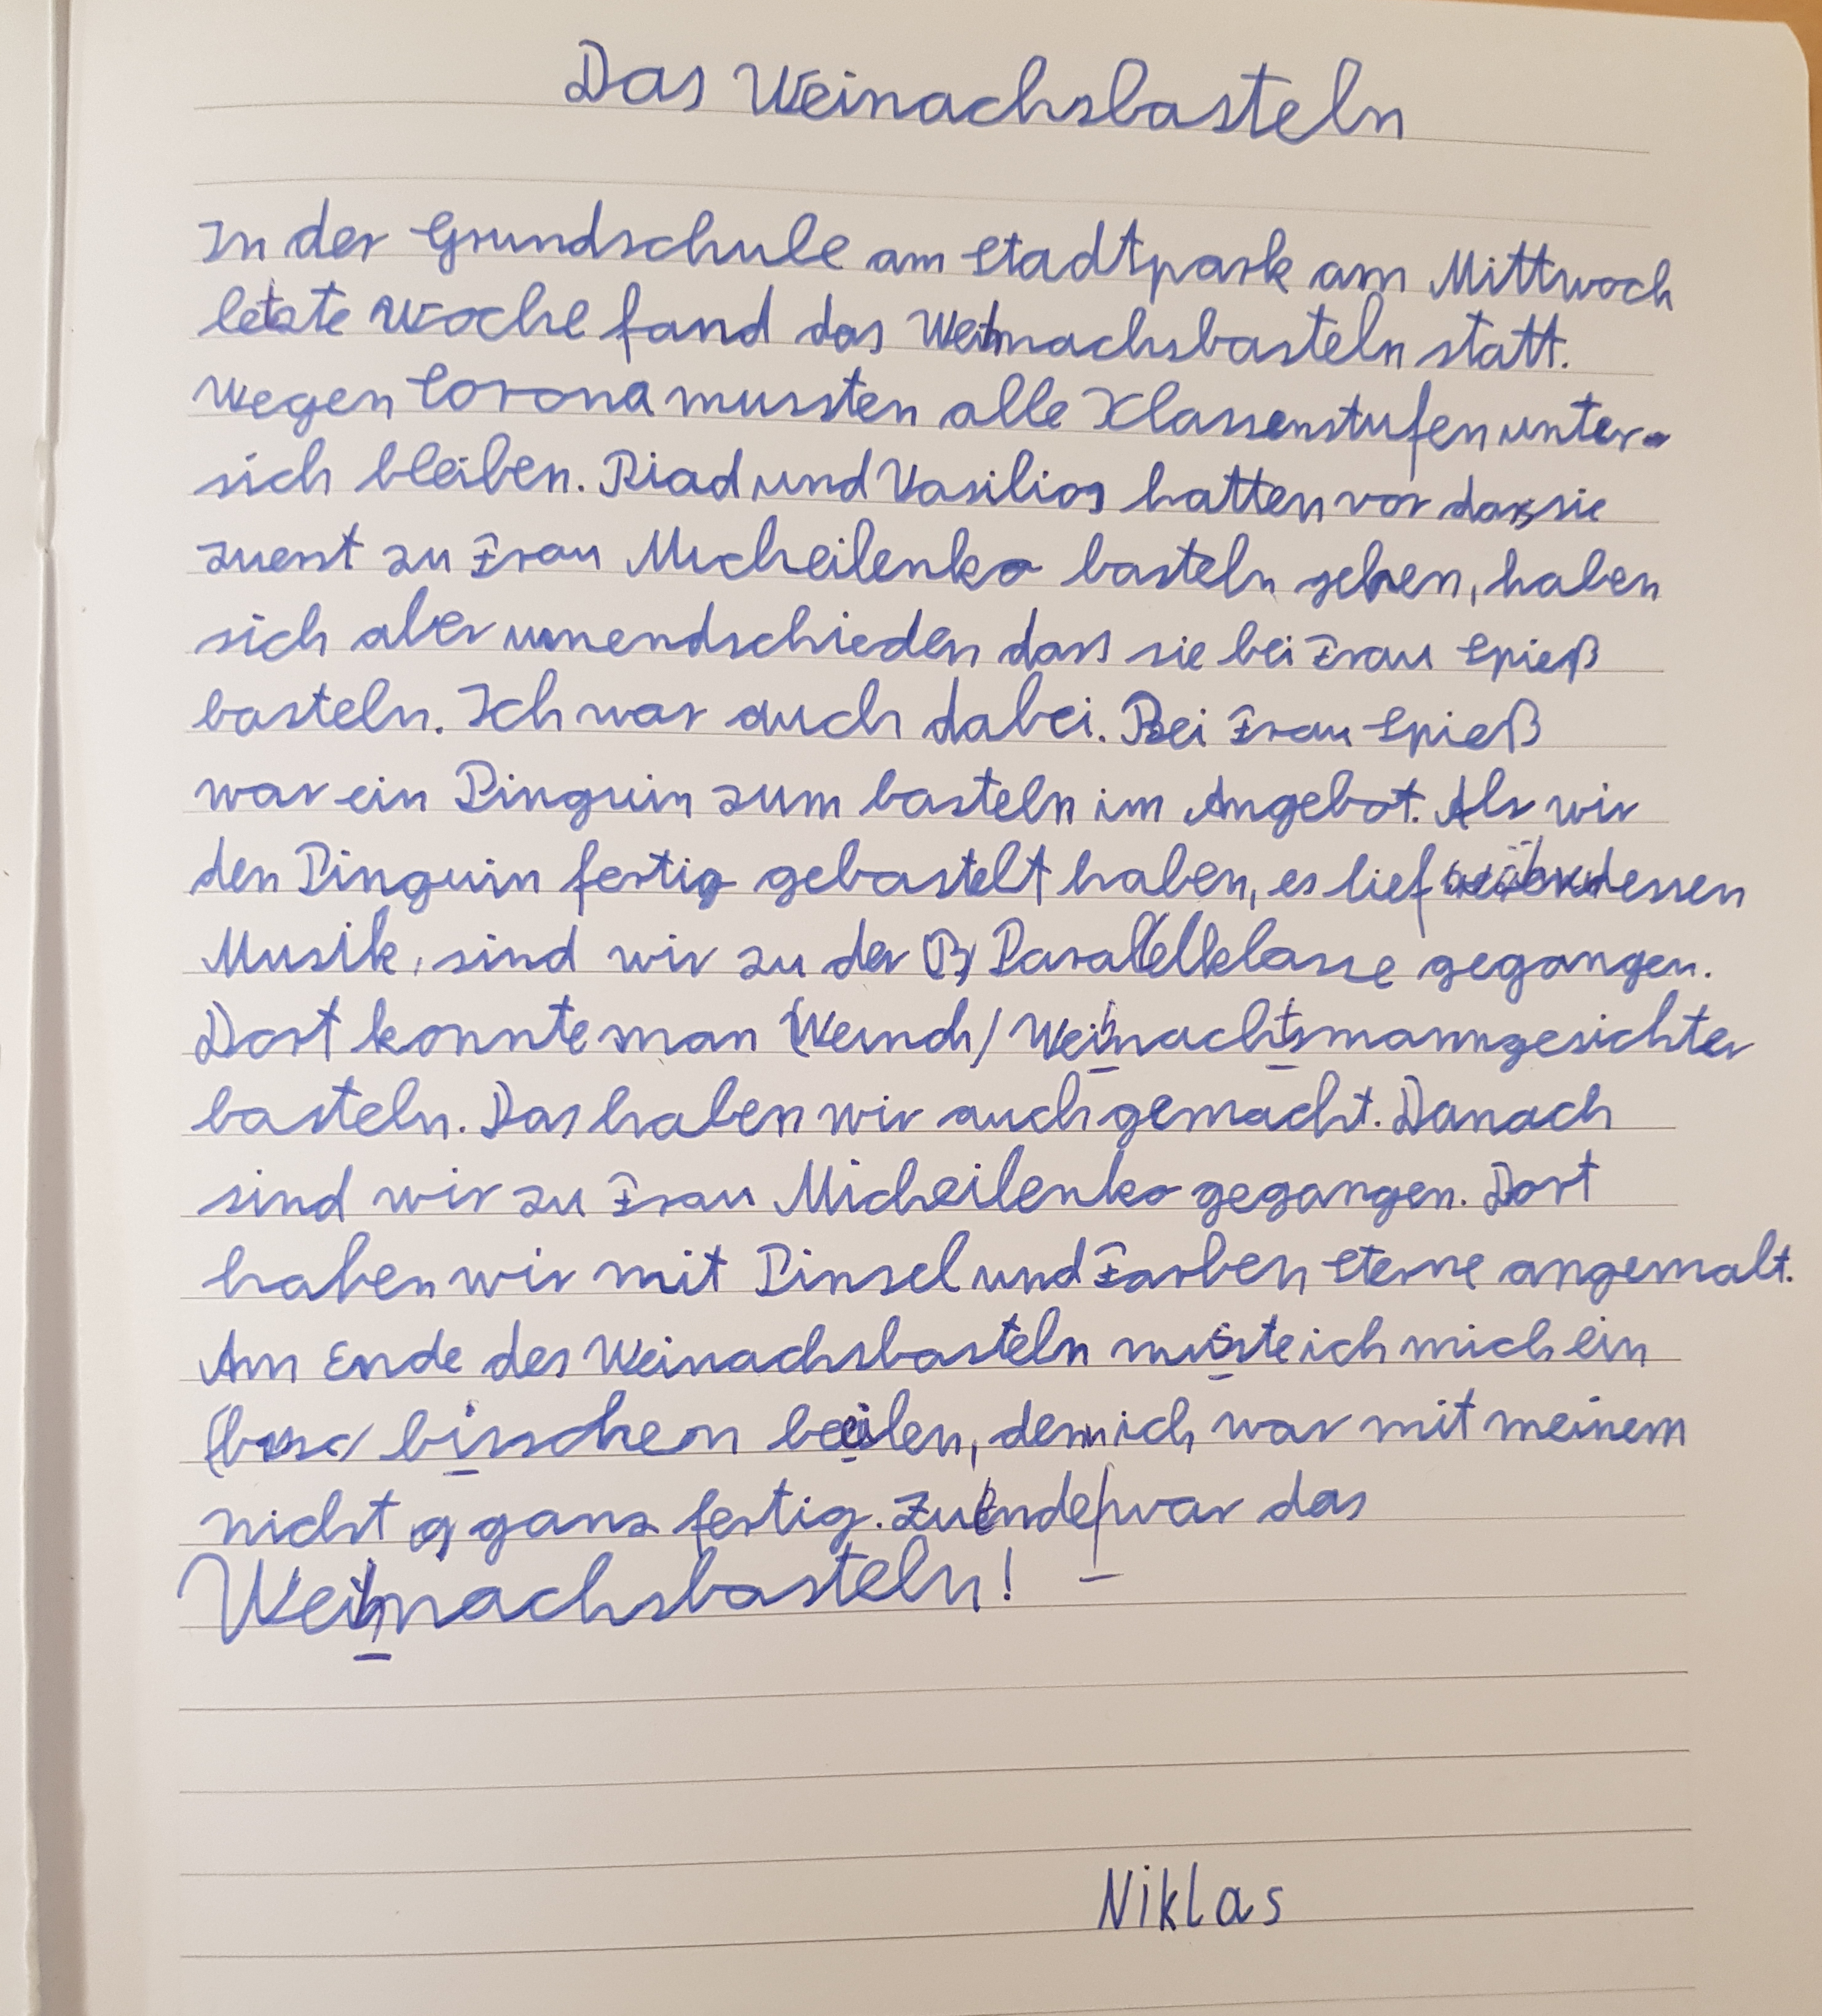 Das Weinachsbasteln
In der Grundschule am Stadtpark am Mittwoch
letzte Woche fand das Weihnachsbasteln statt.
Wegen Corona mussten alle Klassenstufen unter
sich bleiben. Riad und Vasilios hatten vor dass sie
zuerst zu Frau Micheilenko basteln gehen, haben
sich aber umendschieden dass sie bei Frau Spieß
basteln. Ich war auch dabei. Bei Frau Spieß
war ein Pinguin zum basteln im Angebot. Als wir
den Pinguin fertig gebastelt haben, es lief
Musik, sind wir zu der Parallelklasse gegangen.
Dort konnte man Weihnachtsmanngesichter
basteln. Das haben wir auch gemacht. Danach
sind wir zu Frau Micheilenko gegangen. Dort
haben wir mit Pinsel und Farben Sterne angemalt.
Am Ende des Weinachsbasteln musste ich mich ein
bisschen beeilen, denn ich war mit meinem
nicht ganz fertig. Zu Ende war das
Weihnachsbasteln!
Niklas